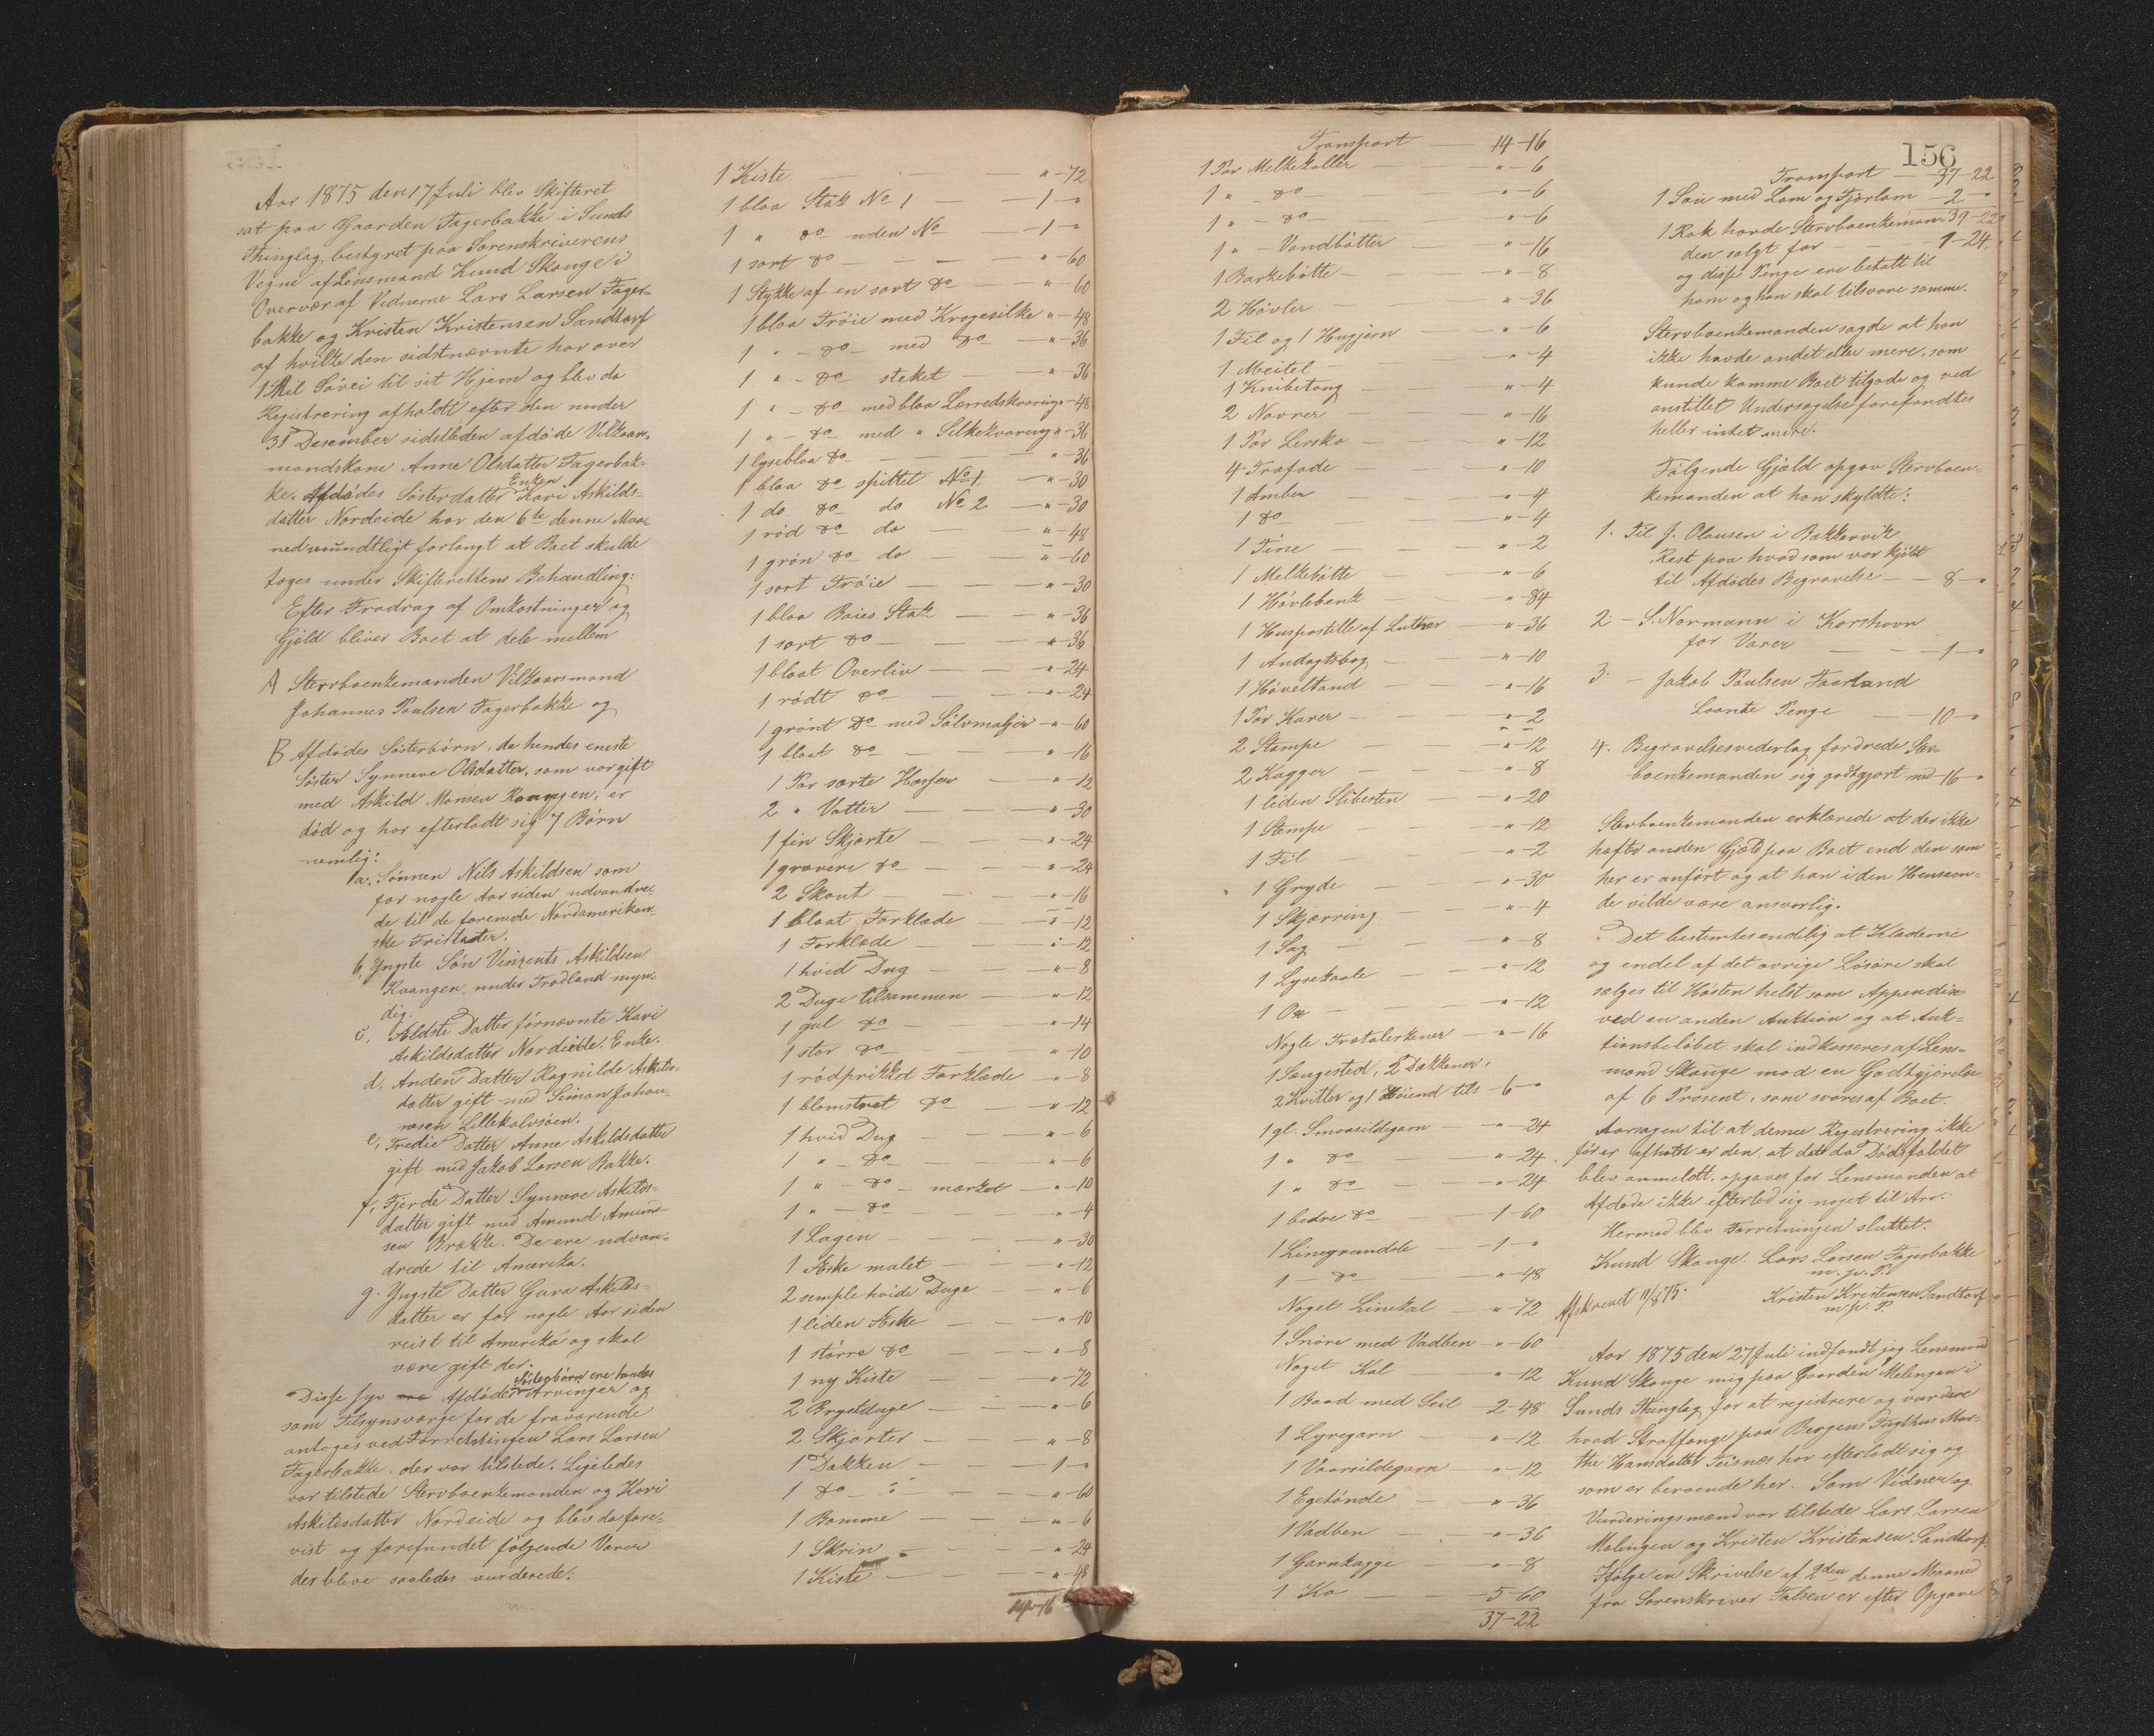 Aar 1875 den 17 Juli blev Skifteret
sat paa Gaarden Fagerbakke i Sunds
Thinglag, bestyret paa Sorenskriverens
Vegne af Lensmand Knud Skauge i
Overvær af Vidnerne Lars Larsen Fager-
bakke og Kristen Kristensen Sandtorf
af hvilke den sidstnævnte har over
1 Mil Søvei til sit Hjem og blev da
Registrering afholdt efter den under
31 Desember sidstleden afdøde Vilkaar-
mandskone Anne Olsdatter Fagerbak-
ke. Afdødes Søsterdatter Enken Kari Askilds-
datter Nordeide har den 6te denne Maa-
ned mundtligt forlangt at Boet skulde
tages under Skifterettens Behandling:
Efter Fradrag af Omkostninger og
Gjæld bliver Boet at dele mellem
A Stervboenkemanden Vilkaarsmand
Johannes Paulsen Fagerbakke og
B Afdødes Søsterbørn, da hendes eneste
Søster Synneve Olsdatter, som var gift
med Askild Monsen Kaangen, er
død og har efterladt sig 7 Børn
nemlig:
a, Sønnen Nils Askildsen som
for nogle Aar siden udvandre-
de til de forenede Nordamerikan-
ske Fristater.
b, Yngste Søn Vinzents Askildsen
Kaangen, under Frodland myn-
dig.
c, Ældste Datter førnævnte Kari
Askildsdatter Nordeide. Enke.
d, Anden Datter Ragnilde Askilds-
datter gift med Simon Johan-
nesen Lillekalvsøen.
e, Tredie Datter Anne Askildsdatter
gift med Jakob Larsen Bakke.
f, Fjerde Datter Synneve Askilds-
datter gift med Amund Amund-
sen Brække. De ere udvan-
drede til Amerika.
g. Yngste Datter Gura Askilds-
datter er for nogle Aar siden
reist til Amerika og skal
være gift der.
Disse syv ere Afdødes Søsterbørn ere hendes Arvinger og
som Tilsynsværge for de fraværende
antoges ved Forretningen Lars Larsen
Fagerbakke, der var tilstede. Ligeledes
var tilstede Stervboenkemanden og Kari
Askildsdatter Nordeide og blev da fore-
vist og forefundet følgende Varer
der bleve saaledes vurderede:
1 Kiste — " - 72
1 blaa Stak No 1 — 1 - "
1 " do uden No — 1 - "
1 sort do — " - 60
1 Stykke af en sort do — " - 60
1 blaa Trøie med Krogesilke " - 48
1 " - do - med do — " - 36
1 " - do - steket — " - 36
1 " - do - med blaa Lærredskvaring " - 48
1 " - do - med " Silkekvaring " - 36
1 lyseblaa do — " - 36
1 blaa do spittet No 1. — " - 30
1 do do do No 2 — " - 30
1 rød do do — " - 48
1 grøn do do — " - 60
1 sort Trøie — " - 30
1 blaa Baies Stak — " - 36
1 sort do — " - 36
1 blaat Overliv — " - 24
1 rødt do — " - 24
1 grønt do med Sølvmaljer — " - 60
1 blaat do — " - 16
1 Par sorte Hosser — " - 12
2 " Vatter — " - 30
1 fin Skjorte — " - 24
1 grovere do — " - 24
2 Skaut — " - 16
1 blaat Forklæde — " - 12
1 Forklæde — " - 12
1 hvid Dug — " - 8
2 Duge tilsammen — " - 12
1 gul do — " - 14
1 stor do — " - 10
1 rødprikket Forklæde — " - 8
1 blomstret do — " - 12
1 hvid Dug — " - 6
1 " - do — " - 6
1 " - do - mærket — " - 10
1 " - do — " - 4
1 Lagen — " - 30
1 Æske malet — " - 12
2 semple hvide Duge — " - 6
1 liden Æske — " - 10
1 større do — " - 8
1 ny Kiste — " - 72
2 Brystduge — " - 6
2 Skjorter — " - 8
1 Dækken — 1 - "
1 do — " - 60
1 Bomme — " - 6
1 Skrin — " - 24
1 Kiste — " - 48
14-16
Transport — 14-16
1 Par Melkekoller — " - 6
1 " do — " - 6
1 " - do — " - 6
1 " - Vandbøtter — " - 16
1 Barkebøtte — " - 8
2 Høvler — " - 36
1 Fil og 1 Hugjern — " - 6
1 Meitel — " - 4
1 Knibetang — " - 4
2 Navrer — " - 16
1 Par Lersko — " - 12
4 Træfade — " - 10
1 Amber — " - 4
1 do — " - 4
1 Tine — " - 2
1 Melkebøtte — " - 6
1 Høvlebenk — " - 84
1 Huspostille af Luther — " - 36
1 Andagtsbog — " - 10
1 Høveltand — " - 16
1 Par Karer — " - 2
2 Stampe — " - 12
2 Kagger — " - 8
1 liden Slibesten — " - 20
1 Stampe — " - 12
1 Fil — " - 2
1 Gryde — " - 30
1 Skjærring — " - 4
1 Sag — " - 8
1 Lysekaale — " - 12
1 Øxe — " - 12
Nogle Trætalerkener — " - 16
1 Sængested, 2 Dækkener,
2 Kvitler og 1 Høiend tils - 6 - "
1 gl. Smaasildegarn — " - 24
1 " do — " - 24
1 " do — " - 24
1 bedre do — 1 - 60
1 Linegrundsle — 1 - "
1 - do — " - 48
Noget Linekal — " - 72
1 Snøre med Vadben — " - 60
Noget Kal — " - 12
1 Baad med Seil - 2 - 48
1 Lyregarn — " - 12
1 Vaarsildegarn — " - 12
1 Egetønde — " - 36
1 Vadben — " - 36
1 Garnkagge — " - 8
1 Ko — 5 - 60
37-22
156
Transport — 37-22
1 Saue med Lam og Fjorlam - 2 - "
39-22
1 Rok havde Stervboenkeman-
den solgt for — 1-24.
og disse Penge ere betalt til
ham og han skal tilsvare samme.
Stervboenkemanden sagde at han
ikke havde andet eller mere, som
kunde komme Boet tilgode og ved
anstillet Undersøgelse forefandtes
heller intet mere.
Følgende Gjæld opgav Stervboen-
kemanden at han skyldte:
1. Til J. Olausen i Bakkervik
Rest paa hvad som var kjøbt
til Afdødes Begravelse — 8 - "
2 - S. Normann i Korshavn
for Varer — 1 - "
3. - Jakob Paulsen Faarland
Laante Penge — 10 - "
4. Begravelsesvederlag fordrede Stev-
boenkemanden sig godtgjort med 16 - "
Stevboenkemanden erklærede at der ikke
hæfter anden Gjæld paa Boet end den som
her er anført og at han i den Henseen-
de vilde være ansvarlig.
Det bestemtes endelig at Klæderne
og endel af det øvrige Løsøre skal
sælges til Høsten helst som Appendix
ved en anden Auktion og at Auk-
tionsbeløbet skal indkasseres af Lens-
mand Skauge mod en Godtgjørelse
af 6 Prosent, som svares af Boet.
Aarsagen til at denne Registrering ikke
før er afholdt er den, at det da Dødsfaldet
blev anmeldt, opgaves for Lensmanden at
Afdøde ikke efterlod sig noget til Arv.
Hermed blev Forretningen sluttet.
Knud Skauge. Lars Larsen Fagerbakke
m. p. P.
Afskrevet 11/8 75.
Kristen Kristensen Sandtorf
m. p. P.
Aar 1875 den 27 Juli indfandt jeg Lensmand
Knud Skauge mig paa Gaarden Melingen i
Sunds Thinglag for at registrere og vurdere
hvad Straffange paa Bergens Tugthus Mar-
the Hansdatter Teisnæs har efterladt sig og
som er beroende her. Som Vidner og
Vurderingsmænd var tilstede Lars Larsen
Melingen og Kristen Kristensen Sandtorf.
Ifølge en Skrivelse af 2den denne Maaned
fra Sorenskriver Falsen er efter Opgave